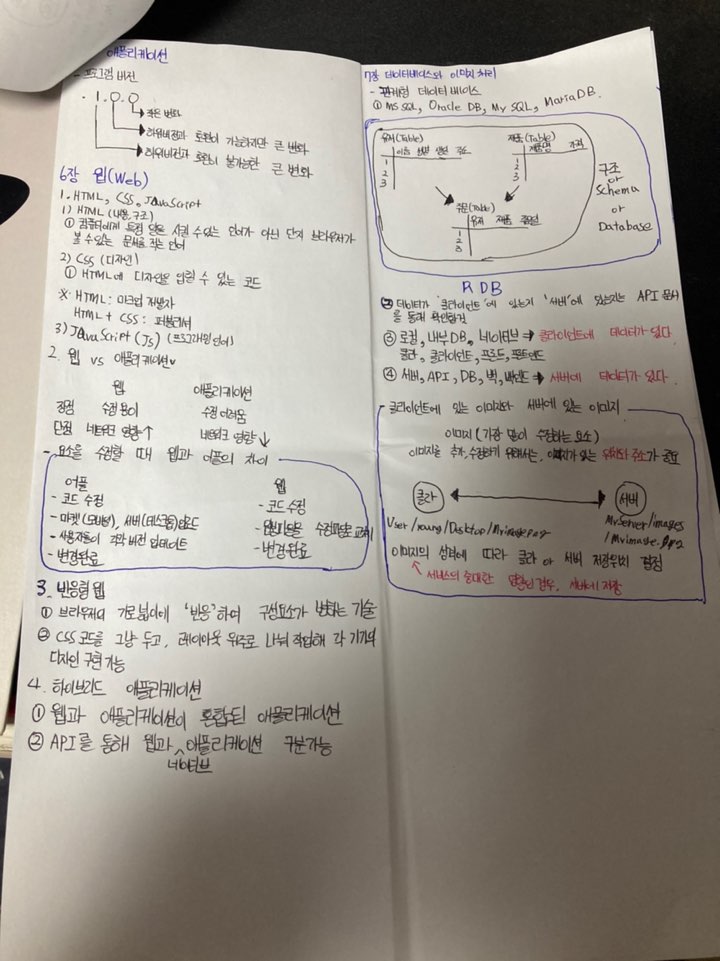 애플리케이션
- 프로그램 버전
1.0.0
작은 변화
하위버전과 호환이 가능하지만 큰 변화
하위버전과 호환이 불가능한 큰 변화
6장 웹(Web)
1. HTML, CSS, JavaScript
1) HTML (내용, 구조)
① 컴퓨터에게 특정 일을 시킬 수 있는 언어가 아닌 단지 브라우저가
볼 수 있는 문서를 적는 언어
2) CSS (디자인)
① HTML에 디자인을 입힐 수 있는 코드
※ HTML: 마크업 개발자
HTML + CSS: 퍼블리셔
3) JavaScript (Js) (프로그래밍 언어)
2. 웹 vs 애플리케이션
웹 애플리케이션
장점 수정 용이 수정 어려움
단점 네트워크 영향↑ 네트워크 영향↓
- 요소를 수정할 때 웹과 어플의 차이
어플
- 코드 수정
- 마켓(모바일), 서버(데스크톱)업로드
- 사용자들이 각자 버전 업데이트
- 변경완료
웹
- 코드 수정
- 수정파일로 교체
- 변경완료
3. 반응형 웹
① 브라우저의 가로넓이에 '반응'하여 구성요소가 변하는 기술
② CSS 코드를 그냥 두고, 레이아웃 위주로 나눠 작업해 각 기기의
디자인 구현 가능
4. 하이브리드 애플리케이션
① 웹과 애플리케이션이 혼합된 애플리케이션
② API를 통해 웹과 네이티브 애플리케이션 구분가능
7장 데이터베이스와 이미지 처리
- 관계형 데이터 베이스
① MS SQL, Oracle DB, My SQL, MariaDB.
유저(Table)
이름 성별 생일 주소
1
2
3
제품(Table)
제품명 가격
1
2
3
주문(Table)
유저 제품
1
2
3
구조
or
Schema
or
Database
RDB
② 데이터가 '클라이언트'에 있는지 '서버'에 있는지는 API 문서
를 통해 확인할것
③ 로컬, 내부DB, 네이티브 → 클라이언트에 데이터가 있다.
클라, 클라이언트, 프론트, 프론트엔드
④ 서버, API, DB, 백, 백엔드 → 서버에 데이터가 있다.
클라이언트에 있는 이미지와 서버에 있는 이미지
이미지 (가장 많이 수정하는 요소)
이미지를 추가, 수정하기 위해서는, 이미지가 있는 위치와 주소가 중요
클라
서버
User/young/Desktop/Myimage.png
Myserver/images
/Myimage.png
이미지의 성격에 따라 클라 or 서버 저장위치 결정
서비스의 중대한 영향인 경우, 서버에 저장